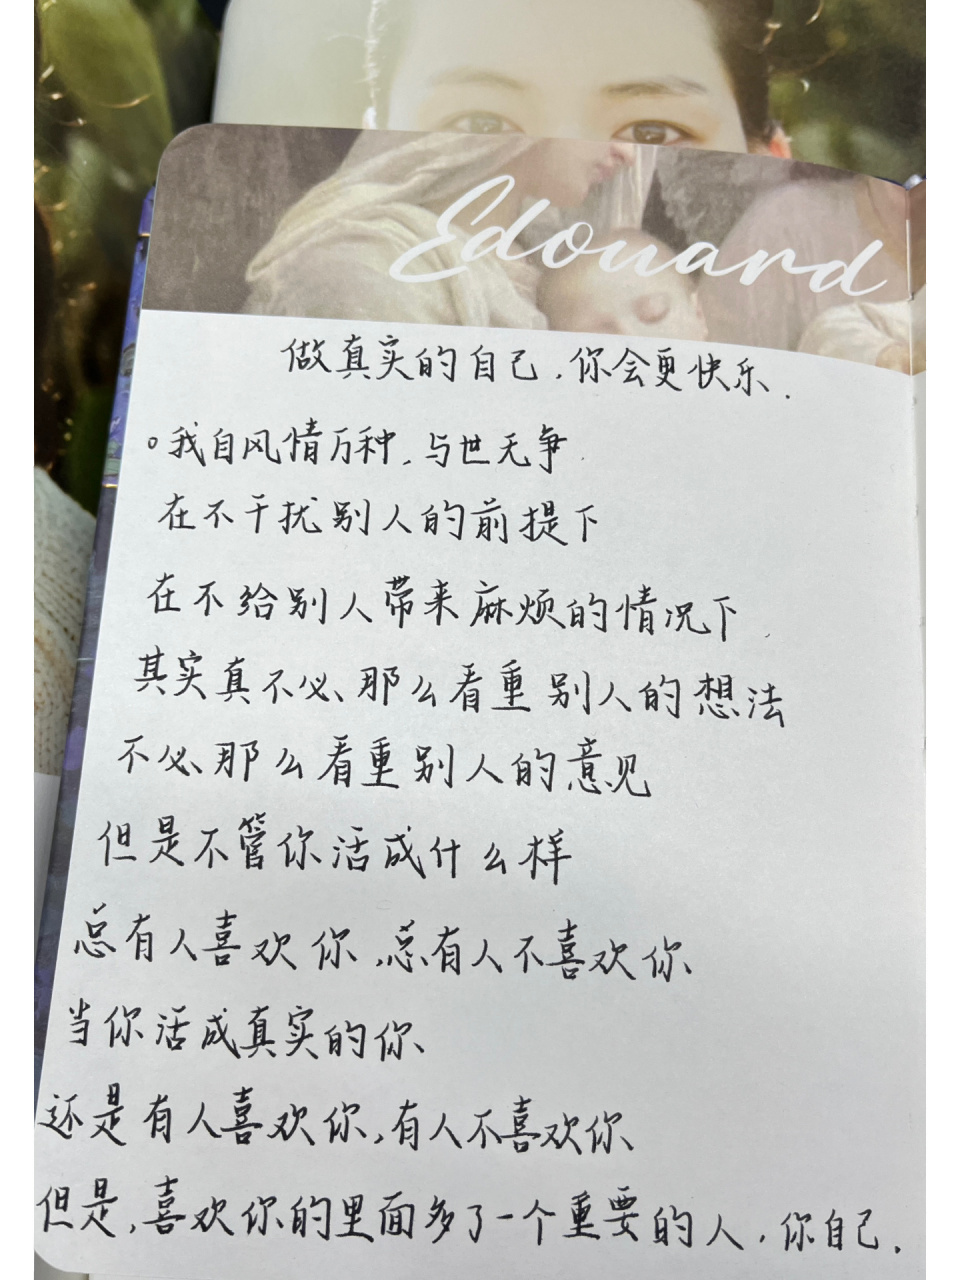 Edouard
做真实的自己，你会更快乐．
。我自风情万种，与世无争．
在不干扰别人的前提下
在不给别人带来麻烦的情况下．
其实真不必那么看重别人的想法
不必那么看重别人的意见
但是不管你活成什么样
总有人喜欢你，总有人不喜欢你
当你活成真实的你
还是有人喜欢你，有人不喜欢你
但是，喜欢你的里面多了一个重要的人，你自己．